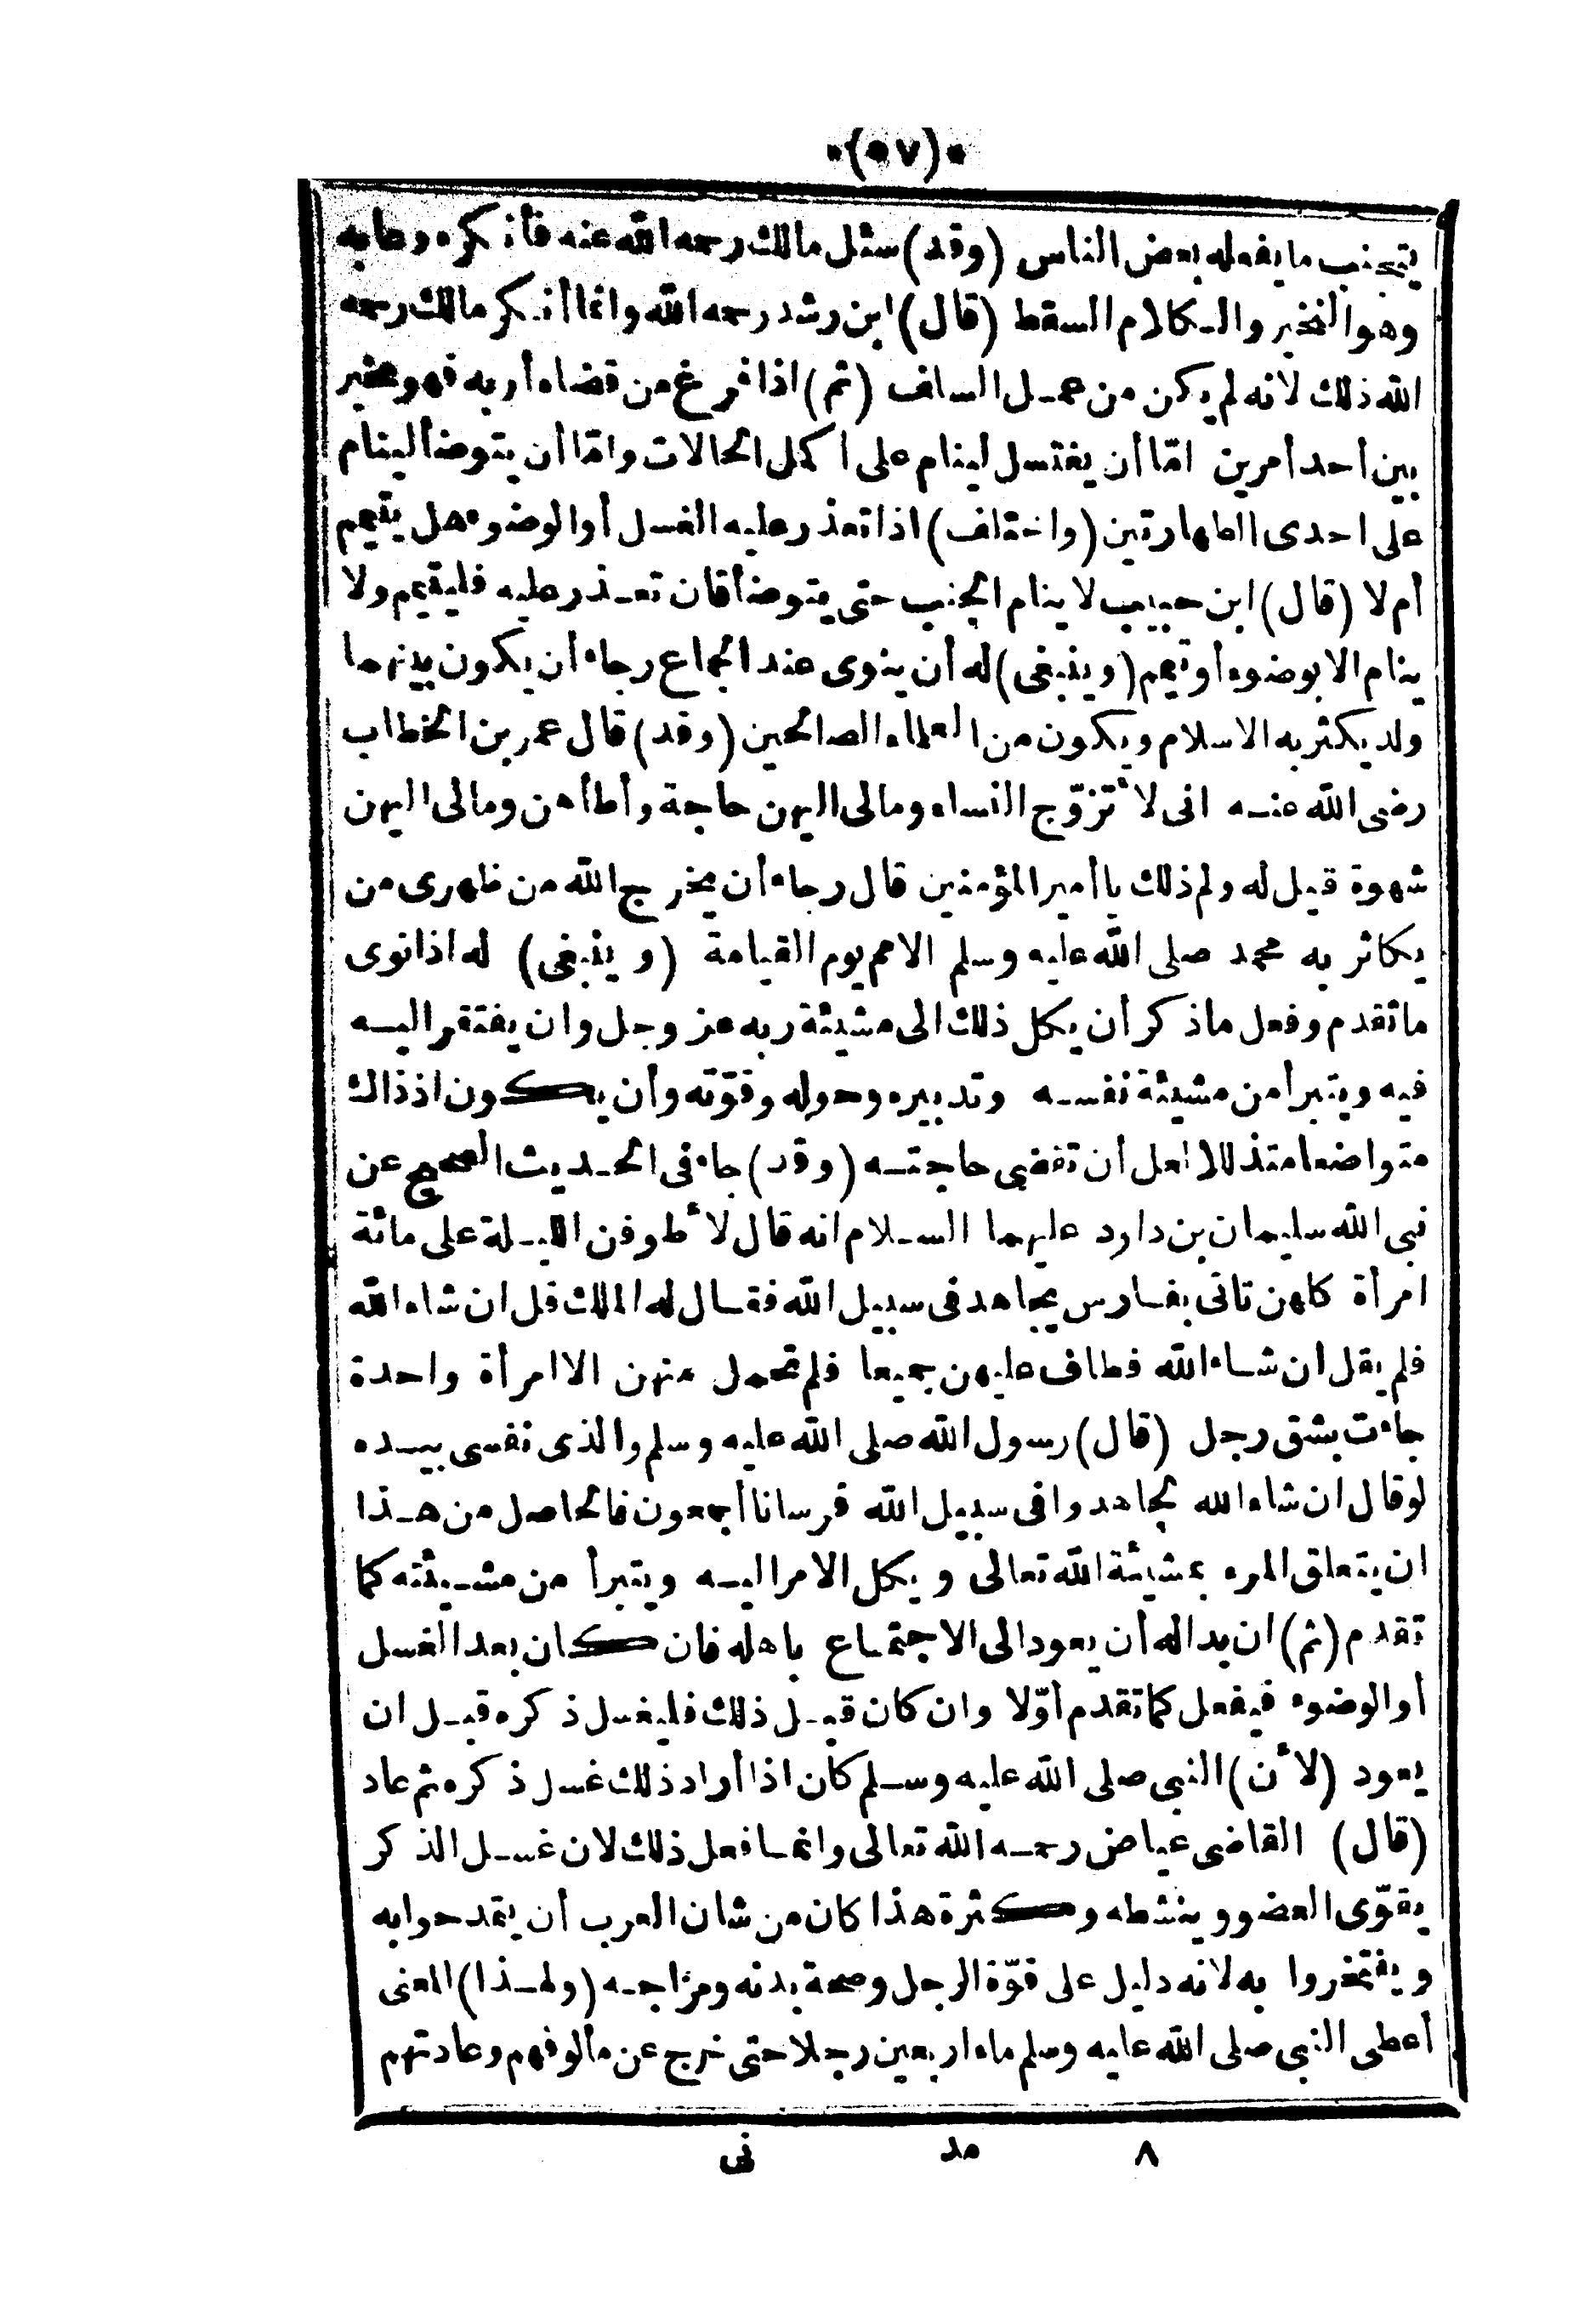 (٥٧)
يتجنب ما يفعله بعض الناس (وقد) سئل مالك رحمه الله عنه فأنكره وعابه
وهو النخير والكلام السقط (قال) ابن رشد رحمه الله وانما أنكر مالك رحمه
الله ذلك لانه لم يكن من عمل السلف (ثم) اذا فرغ من قضاء أربه فهو مخير
بين أحد أمرين امّا أن يغتسل لينام على اكمل الحالات وامّا أن يتوضأ لينام
على احدى الطهارتين (واختلف) اذا تعذر عليه الغسل أو الوضوء هل يتيمم
أم لا (قال) ابن حبيب لا ينام الجنب حتى يتوضأ فان تعذر عليه فليتيمم ولا
ينام الا بوضوء أو تيمم (وينبغى) له أن ينوى عند الجماع رجاء أن يكون بينهما
ولد يكثر به الاسلام ويكون من العلماء الصالحين (وقد) قال عمر بن الخطاب
رضى الله عنه انى لأتزوّج النساء ومالى اليهن حاجة وأطأهن ومالى اليهن
شهوة قيل له ولم ذلك يا أمير المؤمنين قال رجاء أن يخرج الله من ظهرى من
يكاثر به محمد صلى الله عليه وسلم الامم يوم القيامة (وينبغى) له اذا نوى
ما تقدم وفعل ما ذكر أن يكل ذلك الى مشيئة ربه عز وجل وان يفتقر اليه
فيه ويتبرأ من مشيئة نفسه وتدبيره وحوله وقوّته وأن يكون اذ ذاك
متواضعا متذللا لعل أن تقضى حاجته (وقد) جاء فى الحديث الصحيح عن
نبى الله سليمان بن داود عليهما السلام انه قال لأطوفن الليلة على مائة
امرأة كلهن تاتى بفارس يجاهد فى سبيل الله فقال له الملك قل ان شاء الله
فلم يقل ان شاء الله فطاف عليهن جميعا فلم تحمل منهن الا امرأة واحدة
جاءت بشق رجل (قال) رسول الله صلى الله عليه وسلم والذى نفسى بيده
لو قال ان شاء الله لجاهدوا فى سبيل الله فرسانا أجمعون فالحاصل من هذا
ان يتعلق المرء بمشيئة الله تعالى ويكل الامر اليه ويتبرأ من مشيئته كما
تقدم (ثم) ان بدا له أن يعود الى الاجتماع باهله فان كان بعد الغسل
أو الوضوء فيفعل كما تقدم أوّلا وان كان قبل ذلك فليغسل ذكره قبل ان
يعود (لأن) النبى صلى الله عليه وسلم كان اذا أراد ذلك غسل ذكره ثم عاد
(قال) القاضى عياض رحمه الله تعالى وانما فعل ذلك لان غسل الذكر
يقوّى العضو وينشطه وكثرة هذا كان من شان العرب أن يتمدحوا به
ويفتخروا به لانه دليل على قوّة الرجل وصحة بدنه ومزاجه (ولهذا) المعنى
أعطى النبى صلى الله عليه وسلم ماء اربعين رجلا حتى خرج عن مألوفهم وعادتهم
٨ مد نى